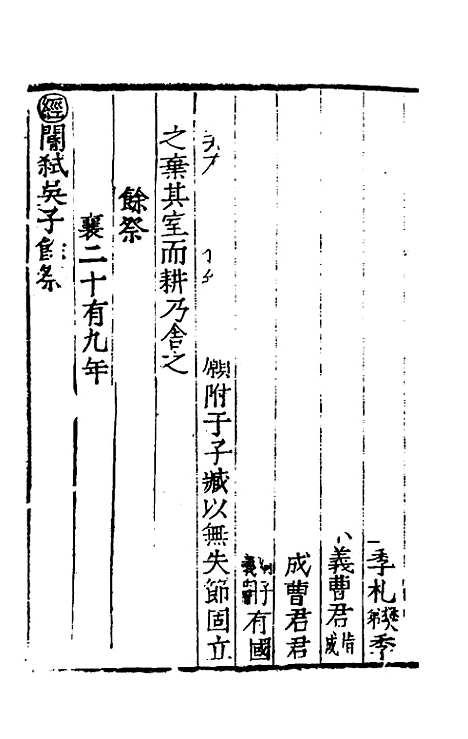 季札樊弟季
義曹君
成曹君君
義有國
願附于子臧以無失節固立
之棄其室而耕乃舍之
餘祭
襄二十有九年
經閽弑吳子餘祭